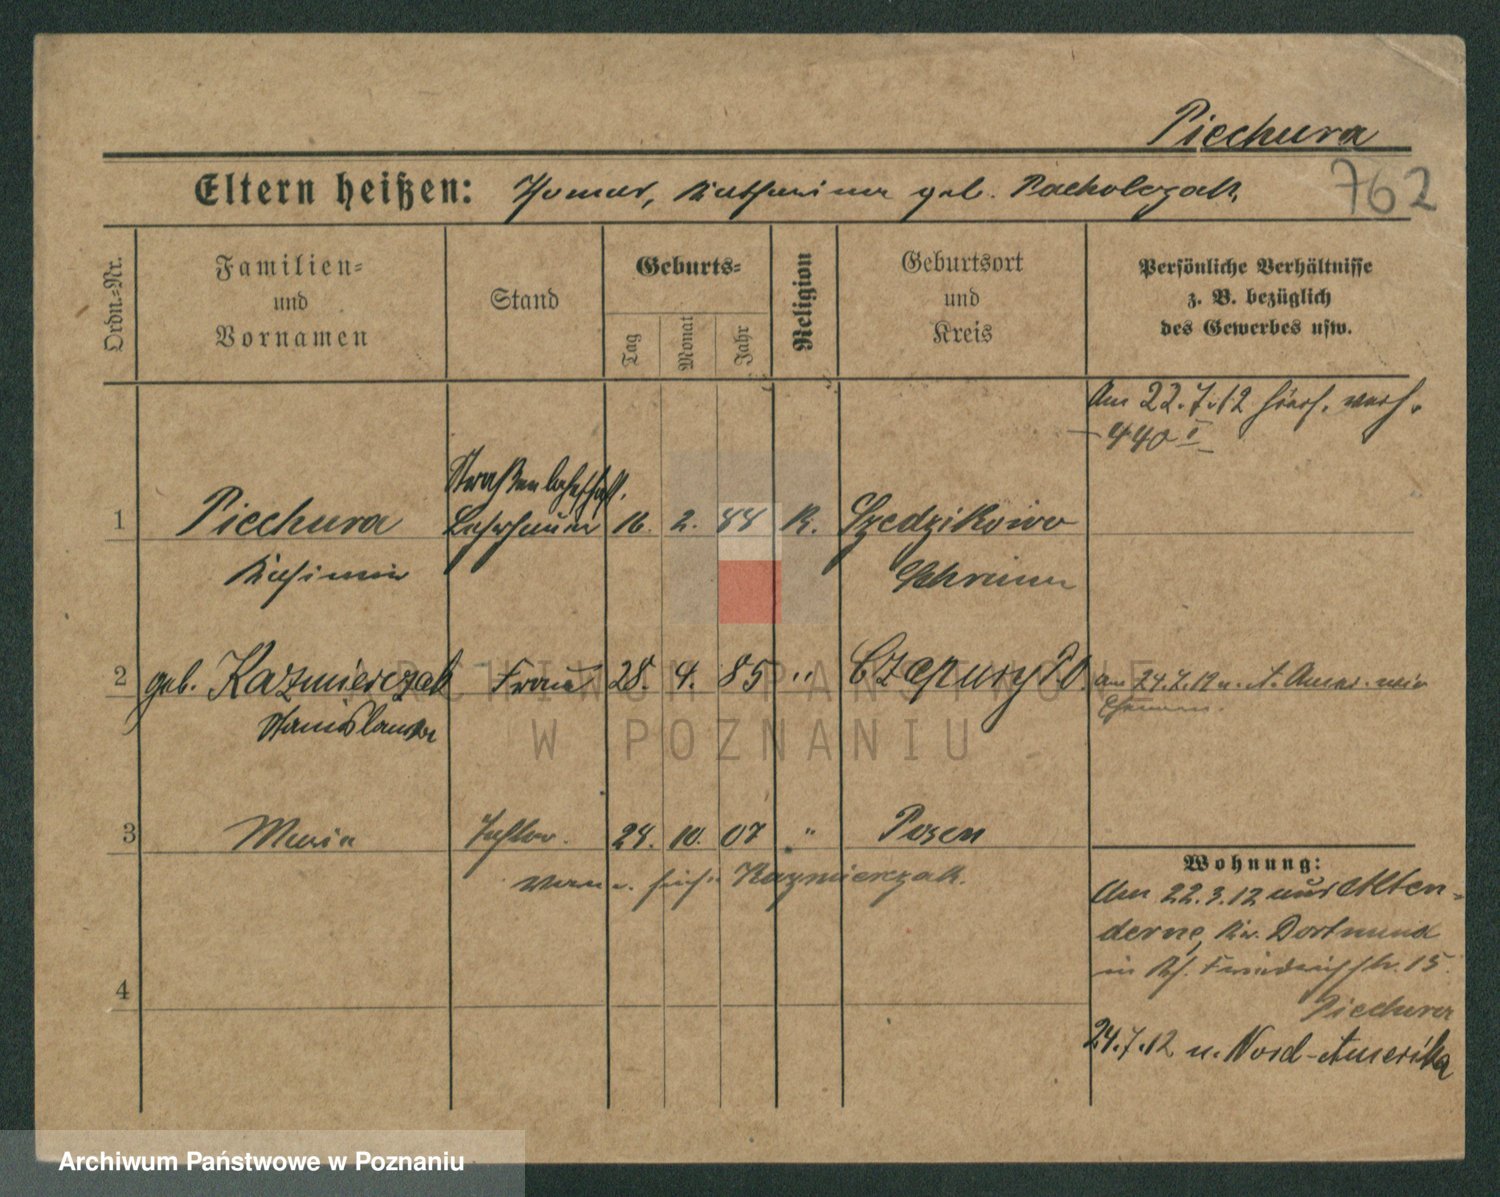 Piechura
762
Eltern heißen: Thomas, Katharina geb. Pacholczak.
Ordn.-Nr.
Familien-
und
Vornamen
Stand
Geburts-
Tag
Monat
Jahr
Religion
Geburtsort
und
Kreis
Persönliche Verhältnisse
z. B. bezüglich
des Gewerbes usw.
Am 22.7.12
440 I
1 Piechura 16. 2. 88 K.
Kasimir Schrimm
2 geb. Kazmierczak Frau 28. 4. 85 " Czempury P.O.
Stanislawa
am 24.7.12 n. N. Amer.
3 Maria Tochter. 28. 10. 07 " Posen
Kazmierczak.
4
Wohnung:
Am 22.3.12 aus Alten-
derne, Kr. Dortmund
Friedrichstr. 15.
Piechura
24.7.12 n. Nord-Amerika
ARCHIWUM PAŃSTWOWE
W POZNANIU
Archiwum Państwowe w Poznaniu